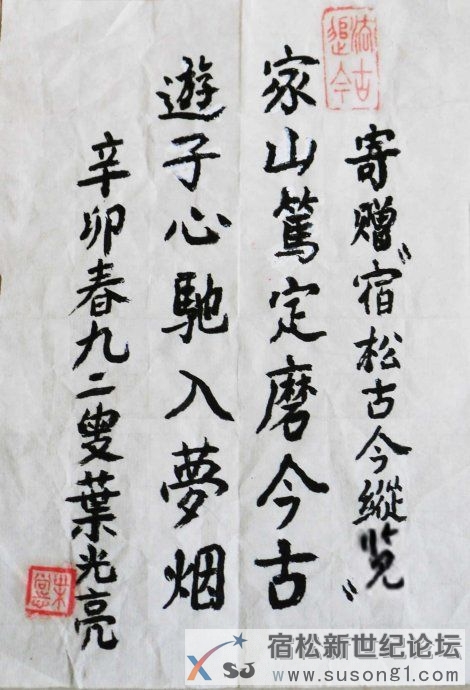 寄贈"宿松古今縱览"
家山篤定磨今古
遊子心馳入夢烟
辛卯春九二叟葉光亮
宿松新世纪论坛
www.susong1.com